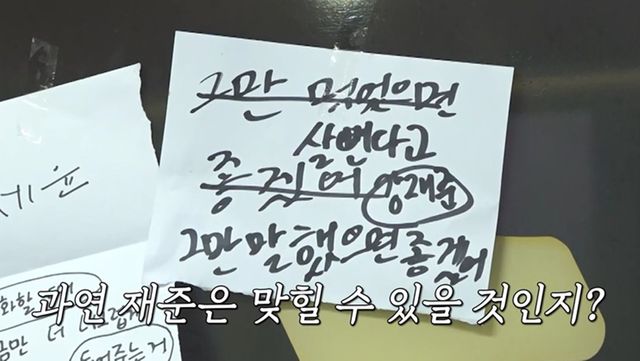 그만 먹었으면
살 뺀다고
좋겠어 양재준
그만 말했으면 좋겠어
세윤
과연 재준은 맞힐 수 있을 것인지?
화할 때
들어주는 거